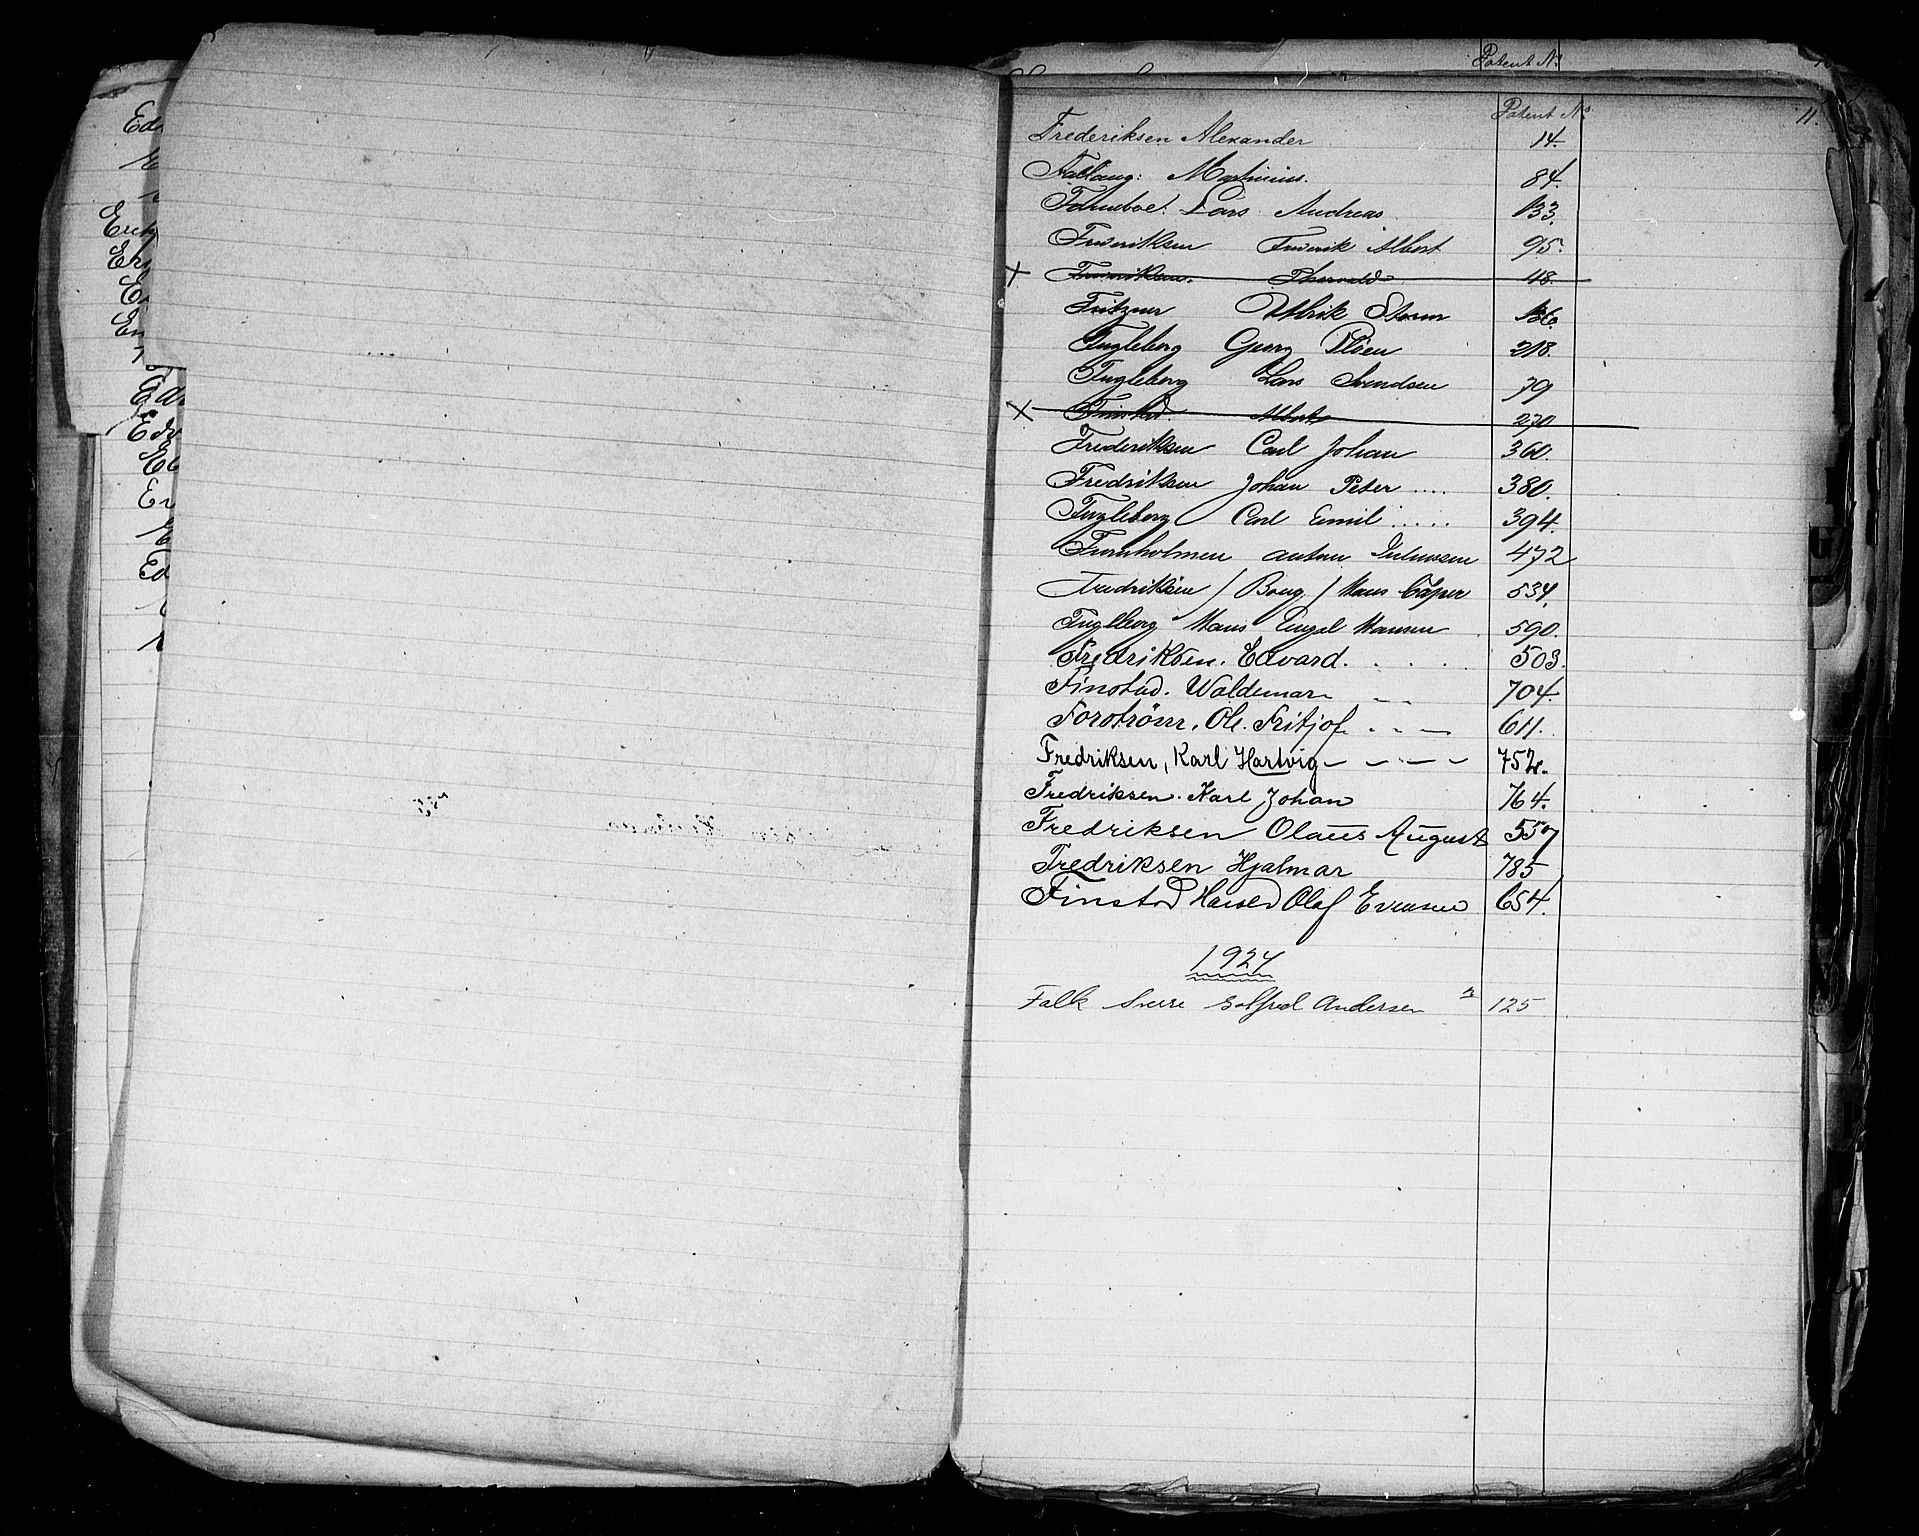 Ed
E
Erik
Er
E
En
Ed
Edv
El
Er
Ed
Patent No
11.
Patent No
Frederiksen Alexander 14.
Fallang: Martinius. 84.
Forneboe. Lars Andreas. 133.
Frederiksen Frederik Albert 95.
× Fredriksen. Thorvald 48.
Fritzner Ulrik Storm 186.
Fugleberg Georg Olsen 218.
Fugleberg Lars Svendsen 79
× Finstad. Albert 270
Frederiksen Carl Johan 360.
Fredriksen Johan Peter .... 380.
Fugleberg Carl Emil ..... 394.
Furuholmen Anton Juliussen 472
Fredriksen / Boug / Hans Casper 534.
Fuglberg Hans Engel Hansen 590.
Fredriksen. Edvard. . . . . 503.
Finstad. Waldemar — — 704.
Forström, Ole. Fritjof. - - — 611.
Fredriksen, Karl Hartvig — — — — — 752.
Fredriksen. Karl Johan 764.
Fredriksen Olaus August 557
Fredriksen Hjalmar 785
Finstad Harald Olaf Evensen 654.
1924
Falk Sverre Golfred Andersen " 125